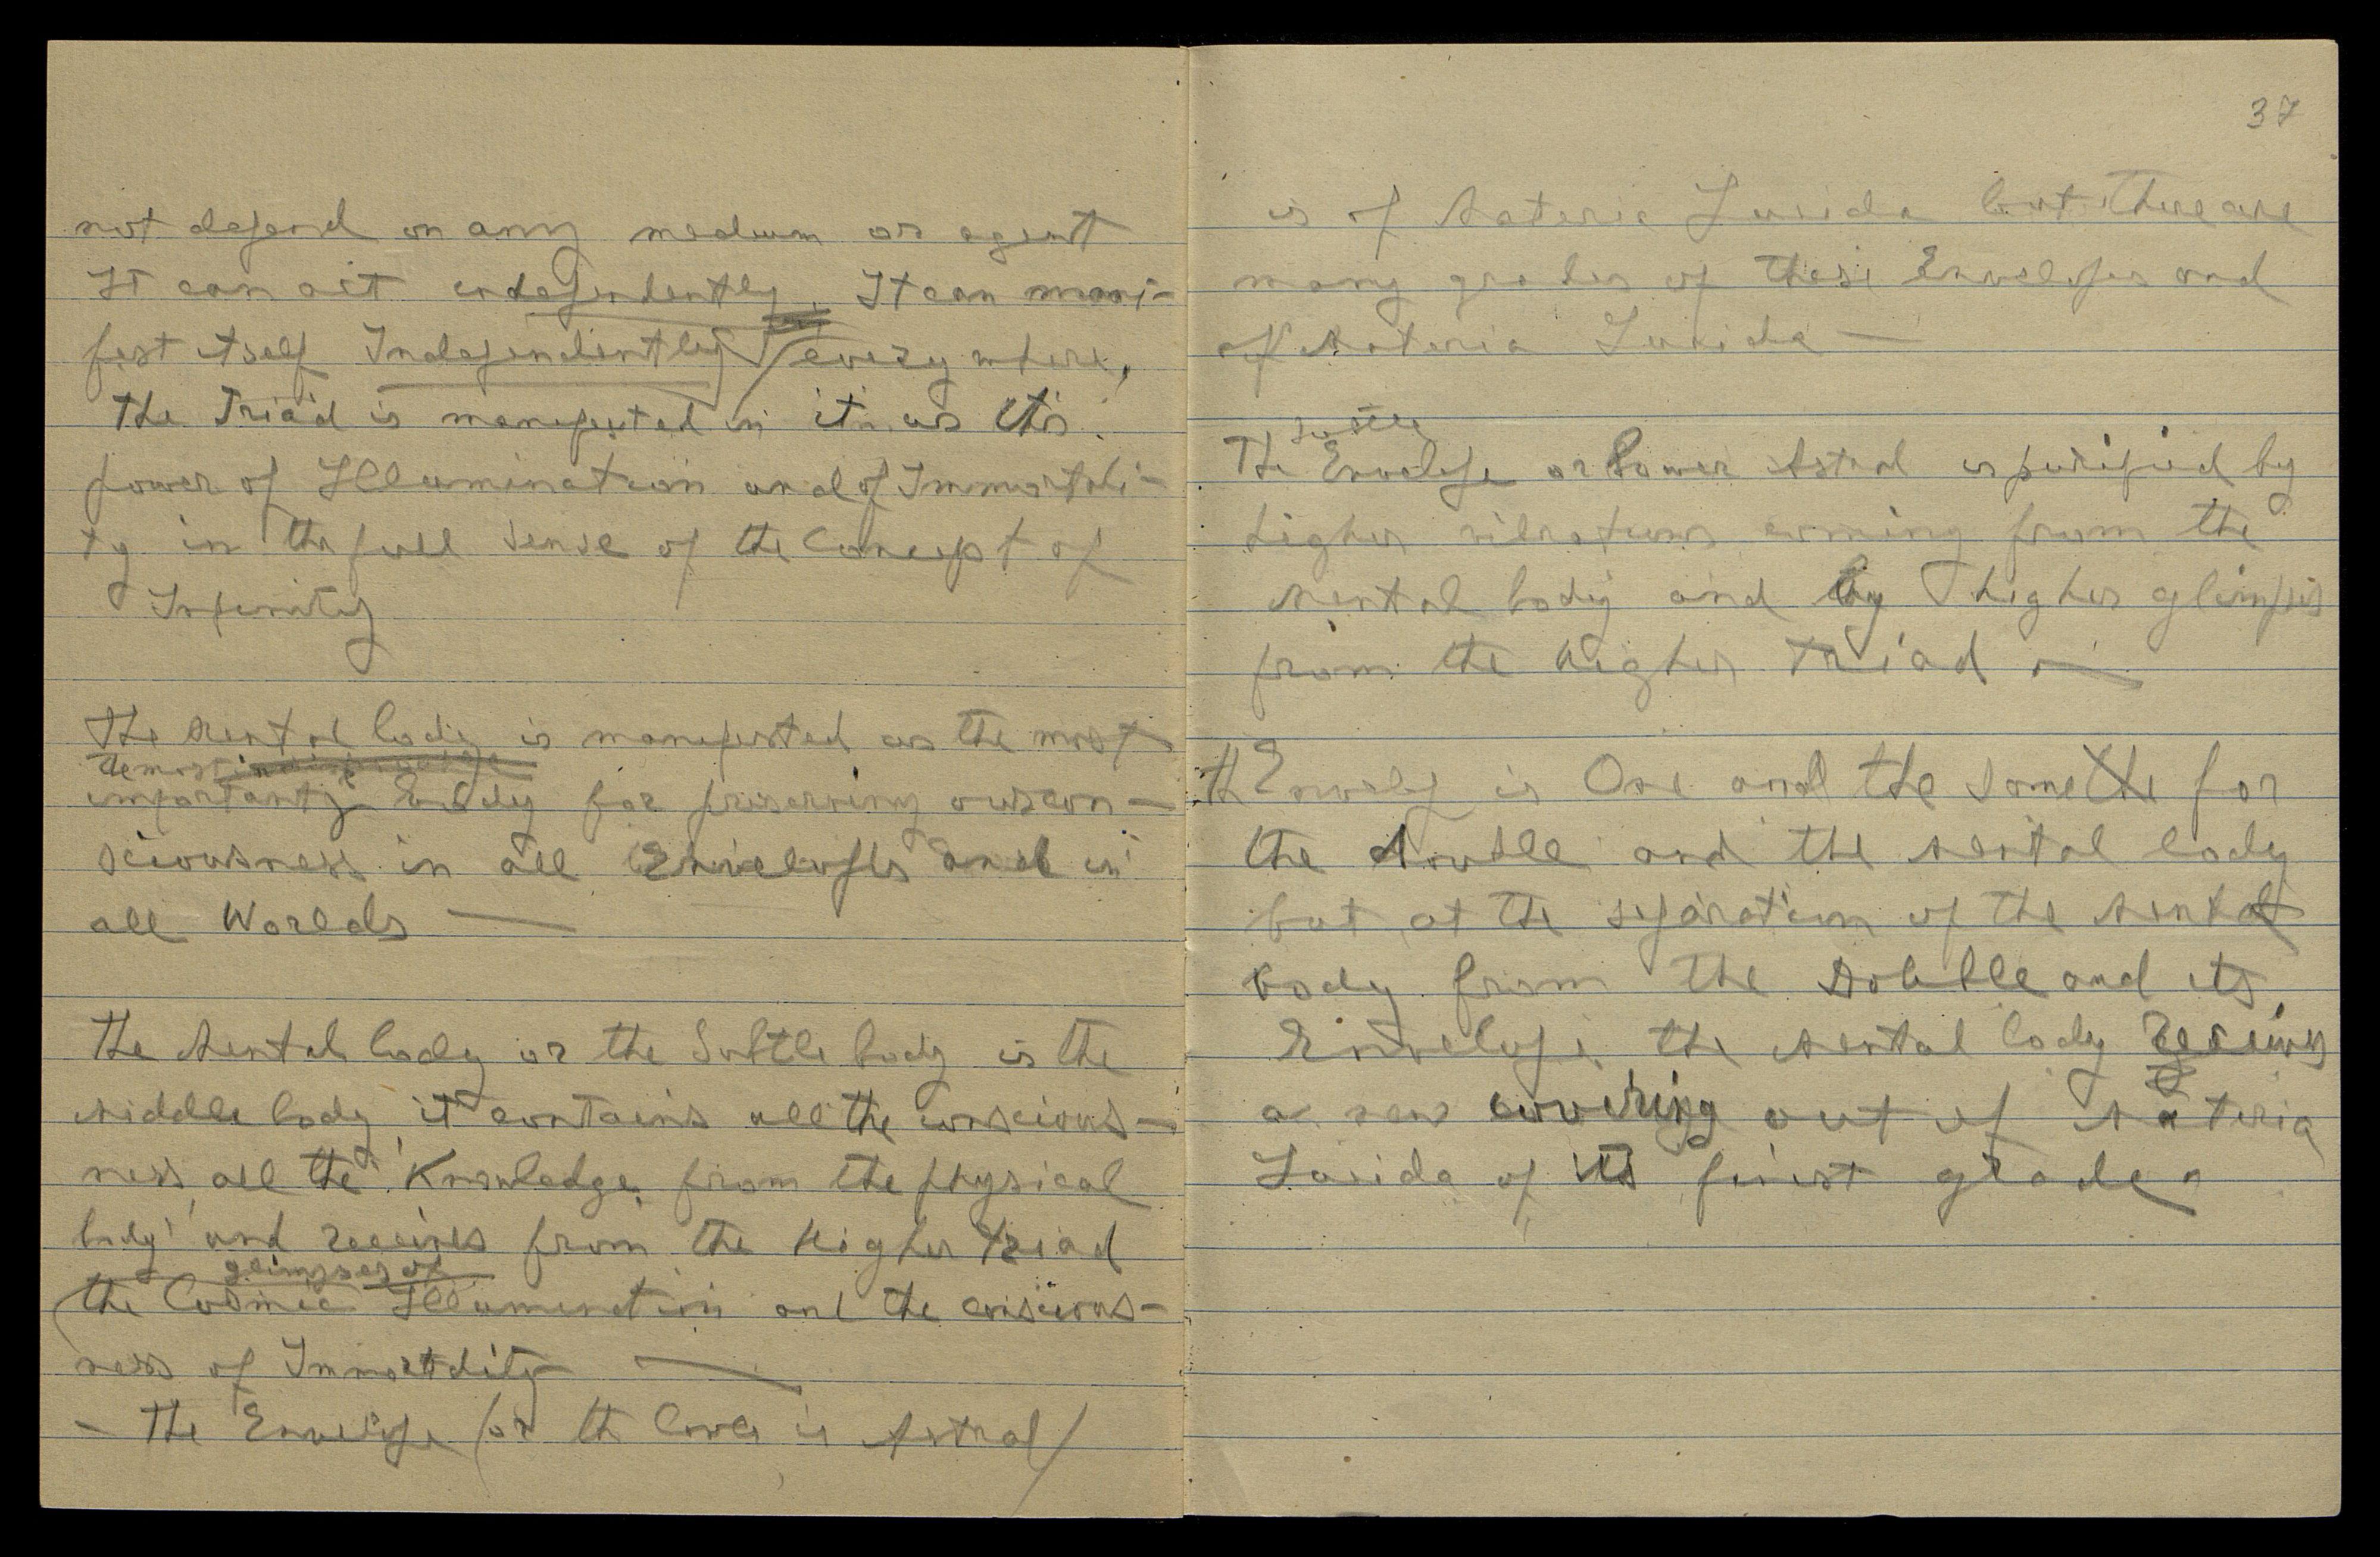 not depend on any medium or agent
It can act independently. It can mani-
fest itself Independently everywhere,
the Triad is manifested in it as its
power of Illumination and of Immortali-
ty in the full sense of the Concept of
Infinity
The Mental body is manifested as the most
important Body for preserving our con-
sciousness in all Envelopes and in
all Worlds —
The Mental body or the Subtle body is the
Middle body, it contains all the conscious-
ness, all the Knowledge from the physical
body and receives from the Higher Triad
glimpses of
the Cosmic Illumination and the conscious-
ness of Immortality —
- The Envelope (or the Lower is Astral)
37
is of Materia Lucida but there are
many grades of these Envelopes and
of Materia Lucida —
subtle
The Envelope or Lower Astral is purified by
higher vibrations coming from the
Mental body and by higher glimpses
from the Higher Triad —
th Envelop is One and the same the for
the double and the Mental body
but at the separation of the Mental
body from the Double and its
Envelope, the Mental body receives
a new covering out of Materia
Lucida of its finest grade.